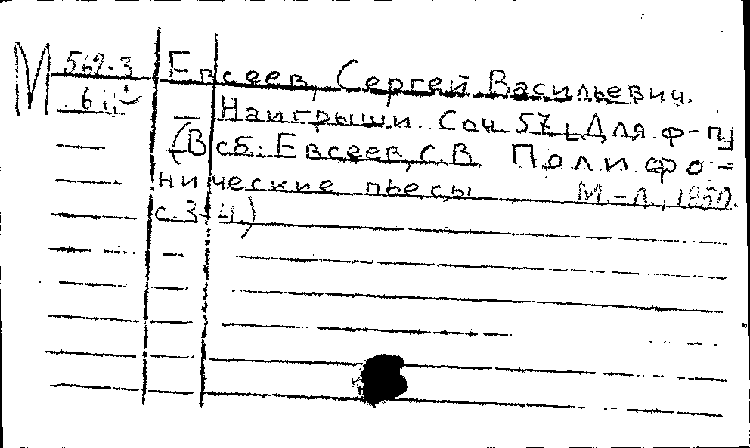 М 569-3 Евсеев, Сергей Васильевич.
Наигрыши. Соч. 57. Для ф-п
(В сб.: Евсеев, С.В. Полифо-
нические пьесы М.-Л., 1950.
с. 3-4.)